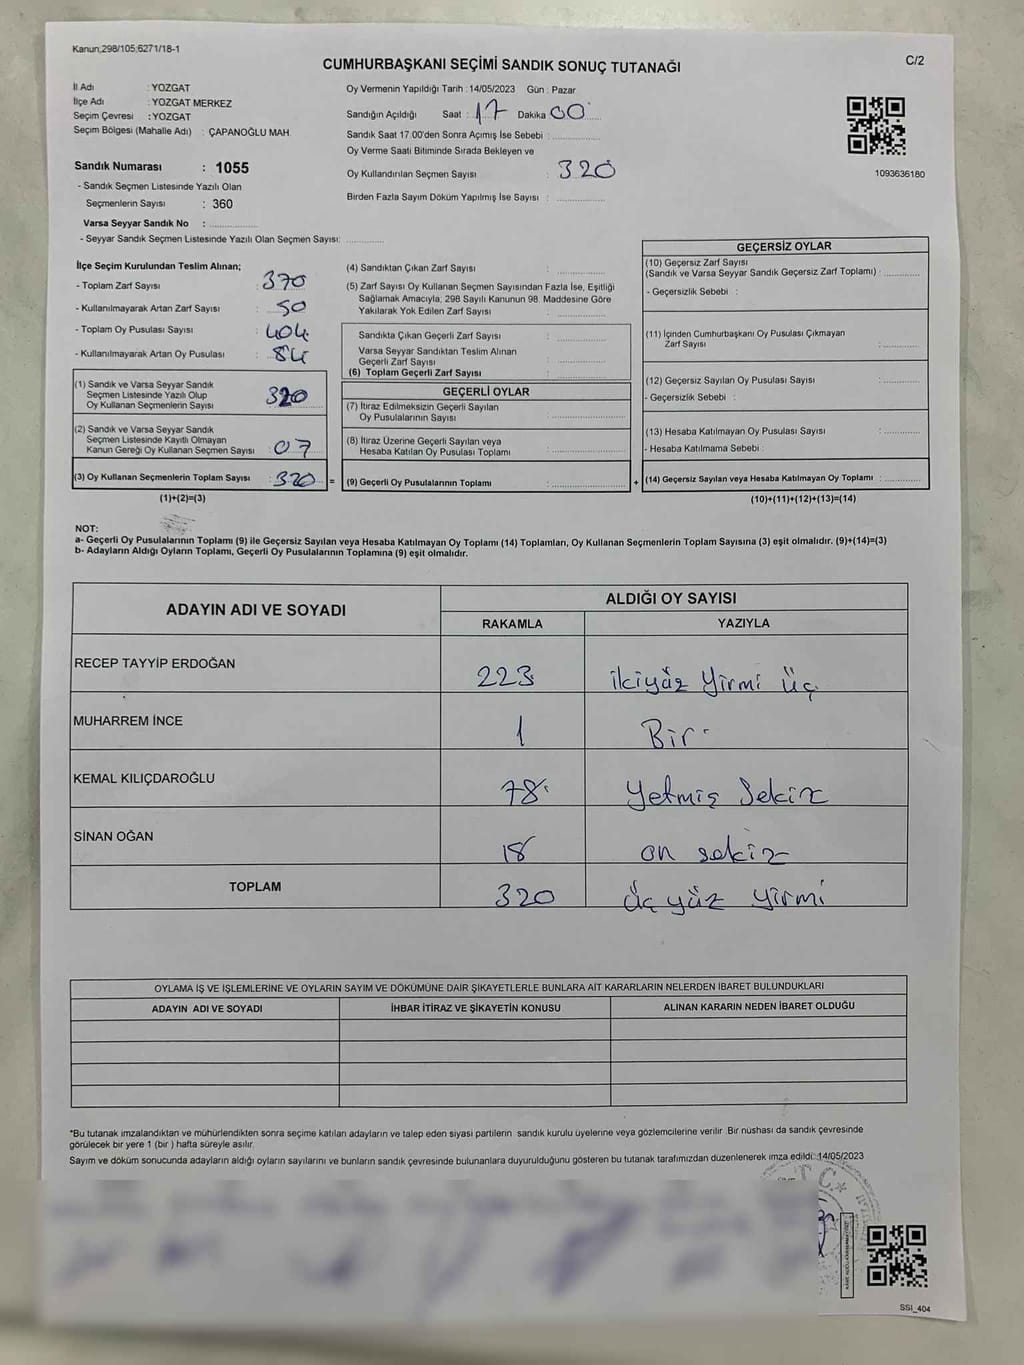 Kanun;298/105;6271/18-1
C/2
CUMHURBAŞKANI SEÇİMİ SANDIK SONUÇ TUTANAĞI
İl Adı : YOZGAT
İlçe Adı : YOZGAT MERKEZ
Seçim Çevresi : YOZGAT
Seçim Bölgesi (Mahalle Adı) : ÇAPANOĞLU MAH.
Sandık Numarası : 1055
- Sandık Seçmen Listesinde Yazılı Olan
Seçmenlerin Sayısı : 360
Varsa Seyyar Sandık No :
- Seyyar Sandık Seçmen Listesinde Yazılı Olan Seçmen Sayısı:
Oy Vermenin Yapıldığı Tarih : 14/05/2023 Gün : Pazar
Sandığın Açıldığı Saat : 17 Dakika 00
Sandık Saat 17.00'den Sonra Açımış İse Sebebi :
Oy Verme Saati Bitiminde Sırada Bekleyen ve
Oy Kullandırılan Seçmen Sayısı : 320
Birden Fazla Sayım Döküm Yapılmış İse Sayısı :
1093636180
İlçe Seçim Kurulundan Teslim Alınan;
- Toplam Zarf Sayısı : 370
- Kullanılmayarak Artan Zarf Sayısı : 50
- Toplam Oy Pusulası Sayısı : 404
- Kullanılmayarak Artan Oy Pusulası : 84
(1) Sandık ve Varsa Seyyar Sandık
Seçmen Listesinde Yazılı Olup
Oy Kullanan Seçmenlerin Sayısı : 320
(2) Sandık ve Varsa Seyyar Sandık
Seçmen Listesinde Kayıtlı Olmayan
Kanun Gereği Oy Kullanan Seçmen Sayısı : 07
(3) Oy Kullanan Seçmenlerin Toplam Sayısı : 320 =
(1)+(2)=(3)
(4) Sandıktan Çıkan Zarf Sayısı :
(5) Zarf Sayısı Oy Kullanan Seçmen Sayısından Fazla İse, Eşitliği
Sağlamak Amacıyla; 298 Sayılı Kanunun 98. Maddesine Göre
Yakılarak Yok Edilen Zarf Sayısı :
Sandıkta Çıkan Geçerli Zarf Sayısı :
Varsa Seyyar Sandıktan Teslim Alınan
Geçerli Zarf Sayısı :
(6) Toplam Geçerli Zarf Sayısı :
GEÇERLİ OYLAR
(7) İtiraz Edilmeksizin Geçerli Sayılan
Oy Pusulalarının Sayısı :
(8) İtiraz Üzerine Geçerli Sayılan veya
Hesaba Katılan Oy Pusulası Toplamı :
(9) Geçerli Oy Pusulalarının Toplamı : +
GEÇERSİZ OYLAR
(10) Geçersiz Zarf Sayısı
(Sandık ve Varsa Seyyar Sandık Geçersiz Zarf Toplamı) :
- Geçersizlik Sebebi :
(11) İçinden Cumhurbaşkanı Oy Pusulası Çıkmayan
Zarf Sayısı :
(12) Geçersiz Sayılan Oy Pusulası Sayısı :
- Geçersizlik Sebebi :
(13) Hesaba Katılmayan Oy Pusulası Sayısı :
- Hesaba Katılmama Sebebi :
(14) Geçersiz Sayılan veya Hesaba Katılmayan Oy Toplamı :
(10)+(11)+(12)+(13)=(14)
NOT:
a- Geçerli Oy Pusulalarının Toplamı (9) ile Geçersiz Sayılan veya Hesaba Katılmayan Oy Toplamı (14) Toplamları, Oy Kullanan Seçmenlerin Toplam Sayısına (3) eşit olmalıdır. (9)+(14)=(3)
b- Adayların Aldığı Oyların Toplamı, Geçerli Oy Pusulalarının Toplamına (9) eşit olmalıdır.
ADAYIN ADI VE SOYADI
ALDIĞI OY SAYISI
RAKAMLA YAZIYLA
RECEP TAYYİP ERDOĞAN 223 ikiyüz Yirmi üç
MUHARREM İNCE 1 Bir
KEMAL KILIÇDAROĞLU 78 Yetmiş Sekiz
SİNAN OĞAN 18 on sekiz
TOPLAM 320 üç yüz yirmi
OYLAMA İŞ VE İŞLEMLERİNE VE OYLARIN SAYIM VE DÖKÜMÜNE DAİR ŞİKAYETLERLE BUNLARA AİT KARARLARIN NELERDEN İBARET BULUNDUKLARI
ADAYIN ADI VE SOYADI İHBAR İTİRAZ VE ŞİKAYETİN KONUSU ALINAN KARARIN NEDEN İBARET OLDUĞU
*Bu tutanak imzalandıktan ve mühürlendikten sonra seçime katılan adayların ve talep eden siyasi partilerin sandık kurulu üyelerine veya gözlemcilerine verilir. Bir nüshası da sandık çevresinde
görülecek bir yere 1 (bir ) hafta süreyle asılır.
Sayım ve döküm sonucunda adayların aldığı oyların sayılarını ve bunların sandık çevresinde bulunanlara duyurulduğunu gösteren bu tutanak tarafımızdan düzenlenerek imza edildi. 14/05/2023
T.C.
SSI_404